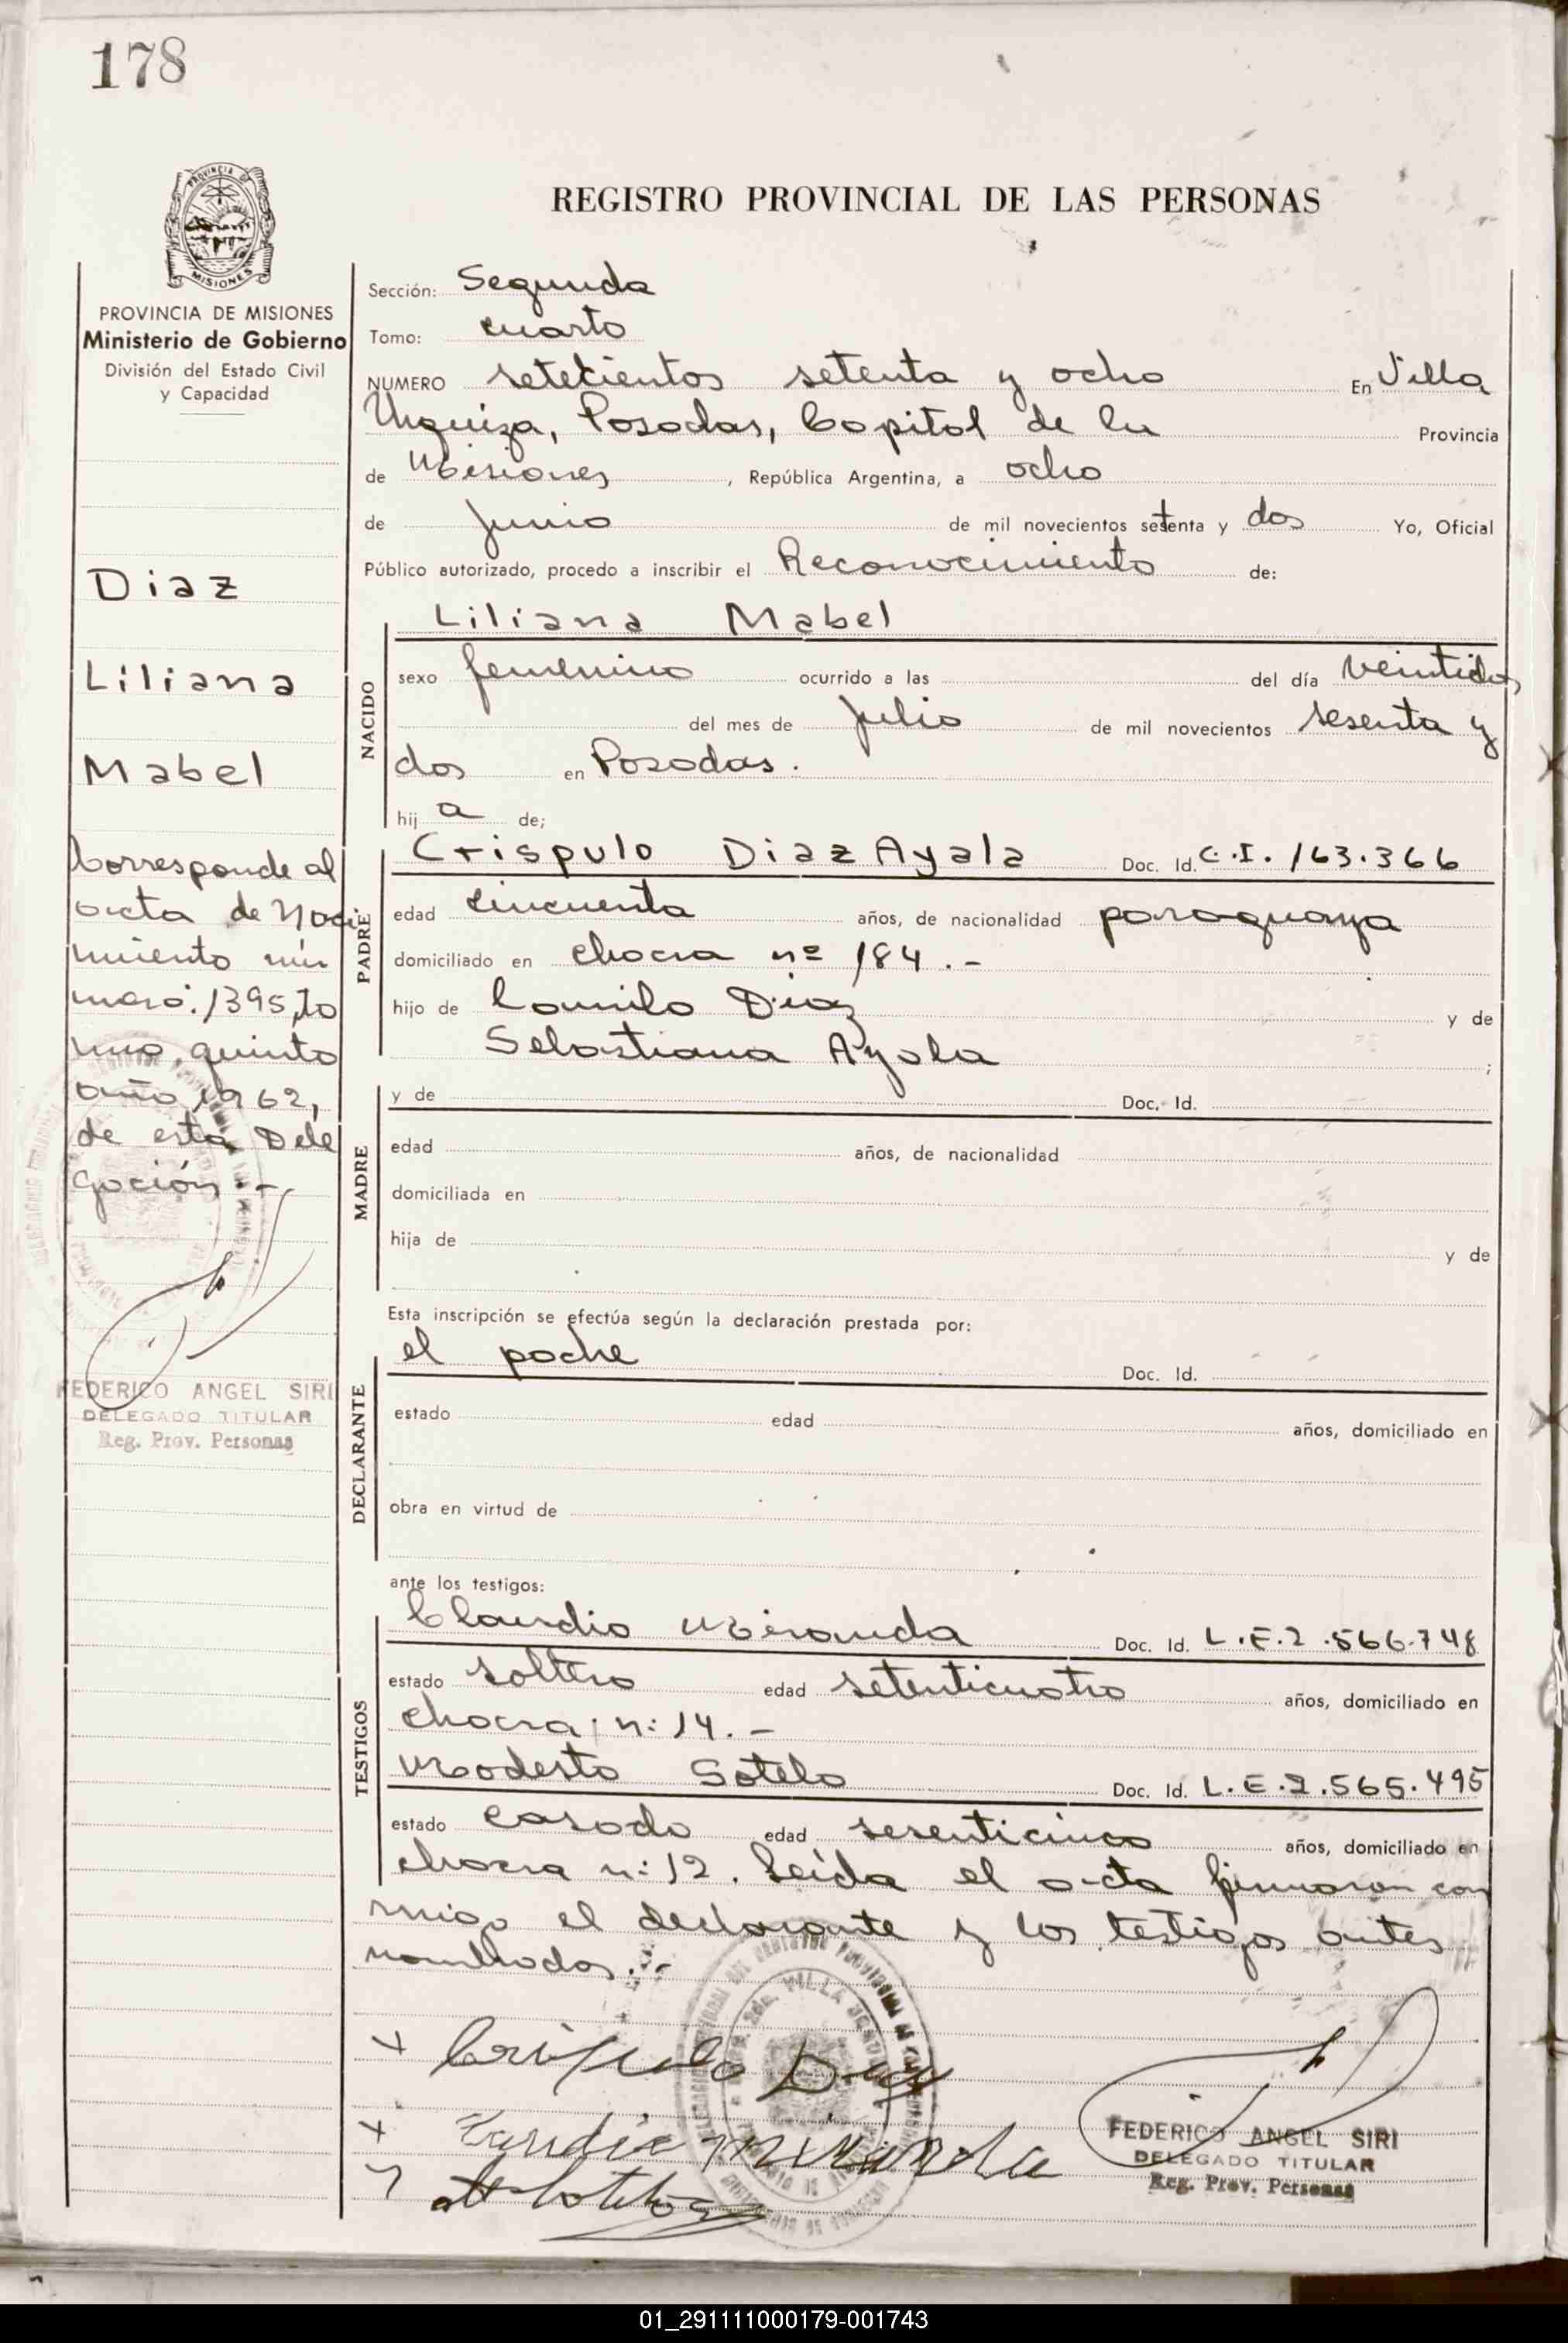 178
PROVINCIA DE
MISIONES
REGISTRO PROVINCIAL DE LAS PERSONAS
PROVINCIA DE MISIONES
Ministerio de Gobierno
División del Estado Civil
y Capacidad
Diaz
Liliana
Mabel
Corresponde al
acta de Naci
miento nú
mero: 1395, to
mo, quinto
año 1962,
de esta Dele
gación.-
FEDERICO ANGEL SIRI
DELEGADO TITULAR
Reg. Prov. Personas
Sección: Segunda
Tomo: cuarto
NUMERO setecientos setenta y ocho En Villa
Urquiza, Posadas, Capital de la Provincia
de Misiones, República Argentina, a ocho
de junio de mil novecientos setenta y dos Yo, Oficial
Público autorizado, procedo a inscribir el Reconocimiento de:
NACIDO
Liliana Mabel
sexo femenino ocurrido a las del día veintidos
del mes de julio de mil novecientos sesenta y
dos en Posadas.
hij a de;
PADRE
Crispulo Diaz Ayala Doc. Id. C.I. 163.366
edad cincuenta años, de nacionalidad paraguaya
domiciliado en chacra nº 184.-
hijo de Camilo Diaz y de
Sebastiana Ayala ;
MADRE
y de Doc. Id.
edad años, de nacionalidad
domiciliada en
hija de y de
Esta inscripción se efectúa según la declaración prestada por:
DECLARANTE
el padre Doc. Id.
estado edad años, domiciliado en
obra en virtud de
ante los testigos:
TESTIGOS
Claudio Miranda Doc. Id. L.E.2.566.748
estado soltero edad setenticuatro años, domiciliado en
chacra n: 14.-
Modesto Sotelo Doc. Id. L.E.2.565.495
estado casado edad sesenticinco años, domiciliado en
chacra n: 12. Leída el acta firmaron con
migo el declarante y los testigos antes
nombrados.-
Crispulo Diaz
Miranda
FEDERICO ANGEL SIRI
DELEGADO TITULAR
Reg. Prov. Personas
01_291111000179-001743